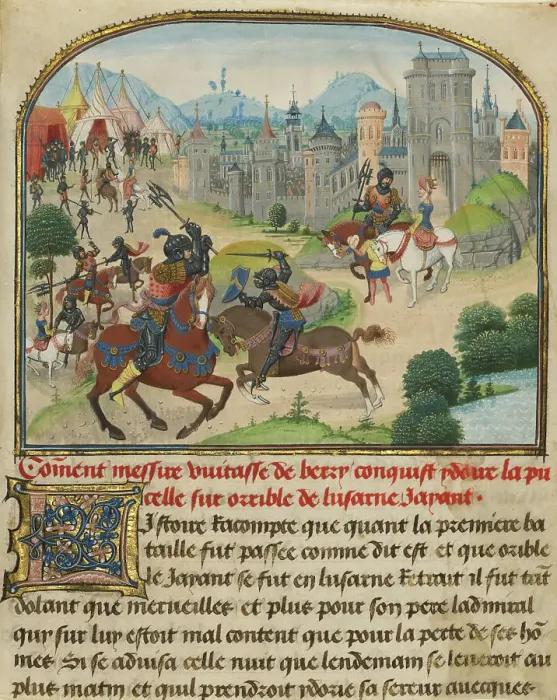 Coment messire vuitasse de berry conquist ydoire la pu
celle sur orrible de lusarne Jayant.
L Istoire Racompte que quant la premiere ba
taille fut passee comme dit est et que orible
le Jayant se fut en lusarne Retrait il fut tant
dolant que merueilles et plus pour son pere ladmiral
quy sur luy estoit mal content que pour la perte de ses hō
mes Si se aduisa celle nuit que lendemain se leueroit au
plus matin et quil prendroit ydorie sa sereur auecques